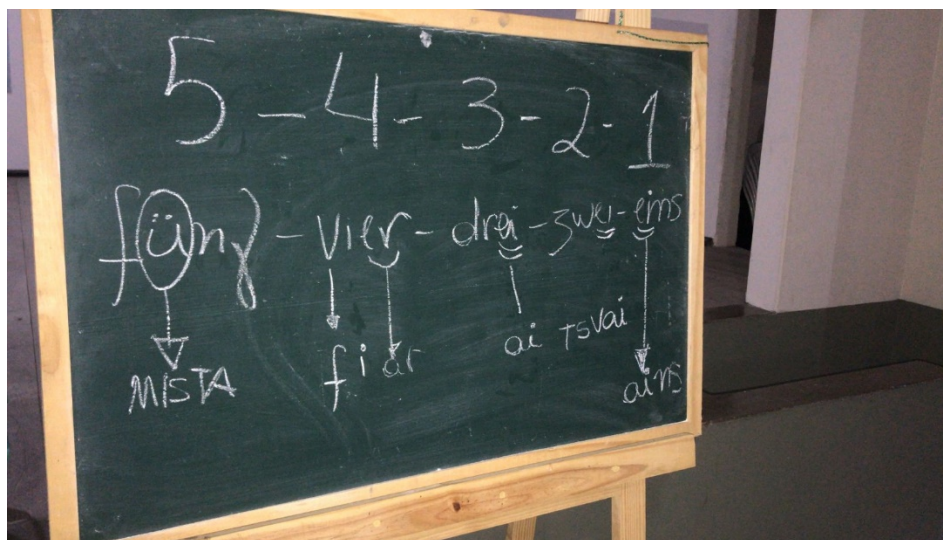 5 - 4 - 3 - 2 - 1
fünf - vier - drei - zwei - eins
MISTA fiar ai TSVai ains